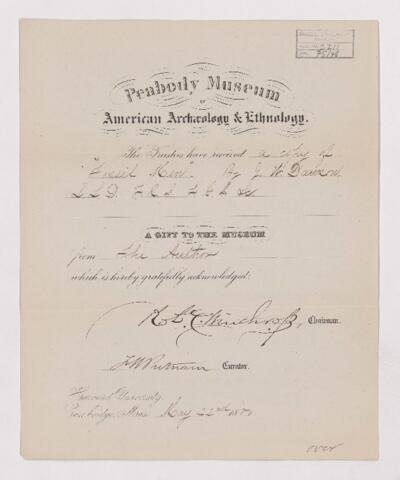 Peabody Museum
OF
American Archæology & Ethnology.
The Trustees have received a copy of
"Fossil Men". By J. W. Dawson
L.L.D. F.R.S. F.G.S. &c
A GIFT TO THE MUSEUM
from The Author
which is hereby gratefully acknowledged.
Robt. C. Winthrop, Chairman.
F W Putnam Curator.
Harvard University,
Cambridge, Mass. May 22nd 1880
over